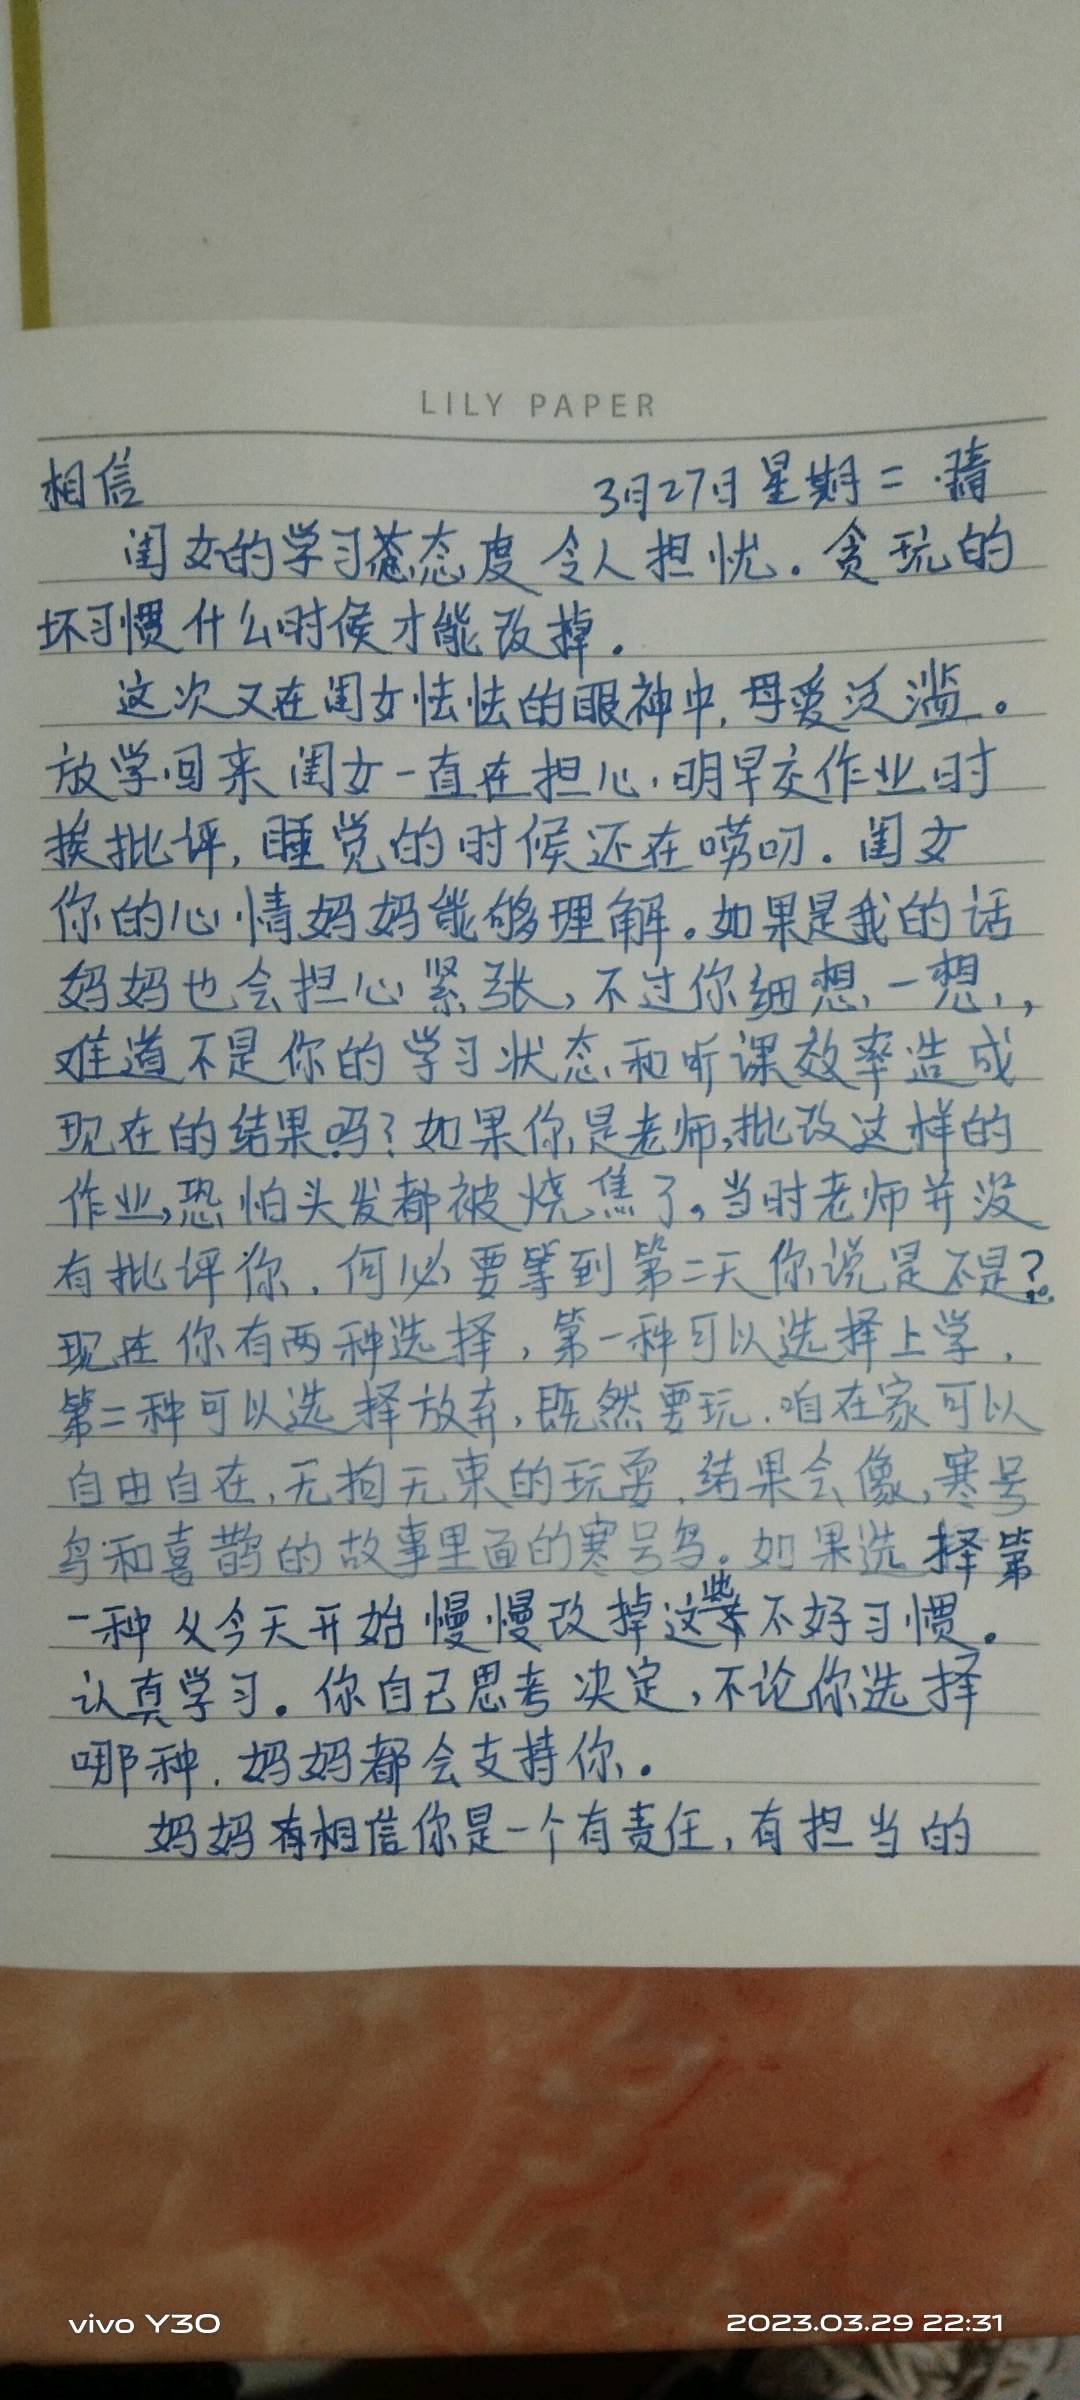 LILY PAPER
相信 3月27日 星期二 晴
闺女的学习态度令人担忧.贪玩的
坏习惯什么时候才能改掉.
这次又在闺女怯怯的眼神中,母爱泛滥。
放学回来闺女一直在担心,明早交作业时
挨批评,睡觉的时候还在唠叨.闺女
你的心情妈妈能够理解。如果是我的话
妈妈也会担心紧张,不过你细想一想,
难道不是你的学习状态和听课效率造成
现在的结果吗?如果你是老师,批改这样的
作业,恐怕头发都被烧焦了。当时老师并没
有批评你.何必要等到第二天你说是不是?
现在你有两种选择,第一种可以选择上学.
第二种可以选择放弃,既然要玩.咱在家可以
自由自在,无拘无束的玩耍.结果会像,寒号
鸟和喜鹊的故事里面的寒号鸟。如果选择第
一种从今天开始慢慢改掉这些不好习惯。
认真学习。你自己思考决定,不论你选择
哪种.妈妈都会支持你。
妈妈相信你是一个有责任,有担当的
vivo Y30
2023.03.29 22:31